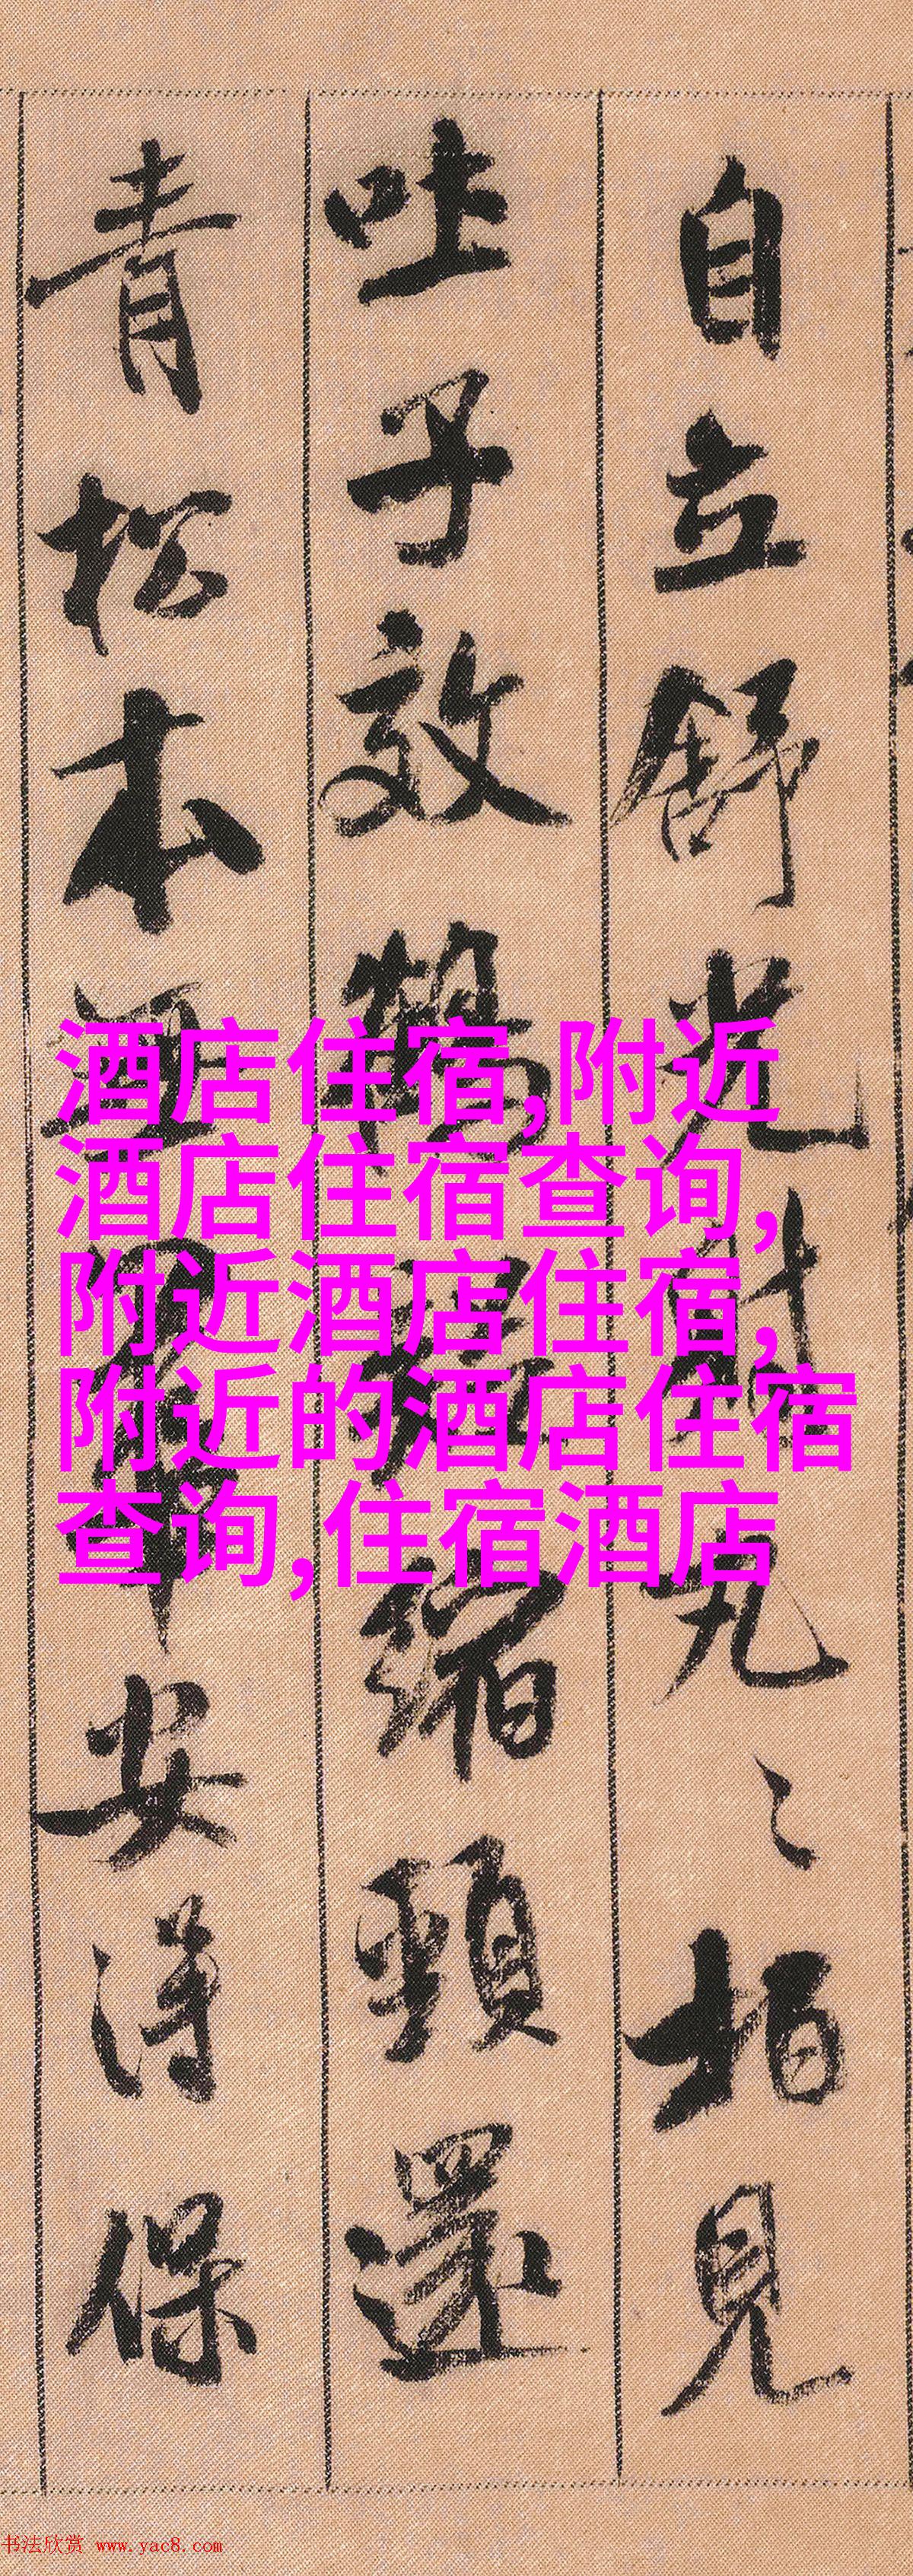 自立舒光射丸〻柏見
吐子效鶴疑縮頸還
青松本無華安得保
酒店住宿,附近
酒店住宿查询,
附近酒店住宿,
附近的酒店住宿
查询,住宿酒店
书法欣赏 www.yac8.com